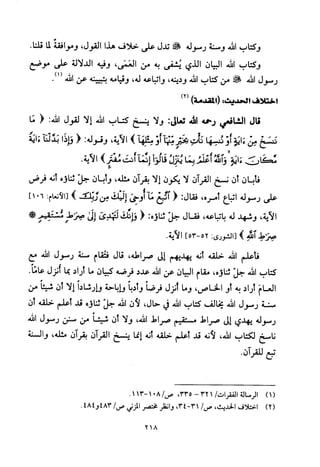 وكتاب الله وسنة رسوله ﷺ تدل على خلاف هذا القول، وموافقة لما قلنا.
وكتاب الله البيان الذي يُشفى به من العَمَى، وفيه الدلالة على موضع
رسول الله ﷺ من كتاب الله ودينه، واتباعه له، وقيامه بتبيينه عن الله (١).
اختلاف الحديث: (المقدمة) (٢)
قال الشافعي رحمه الله تعالى: ولا ينسخ كتـاب الله إلا لقول الله: ﴿ مَا
نَنسَخْ مِنْ ءَايَةٍ أَوْ نُنسِهَا نَأْتِ بِخَيْرٍ مِّنْهَآ أَوْ مِثْلِهَآ ﴾ الآية، وقـولـه: ﴿ وَإِذَا بَدَّلْنَآ ءَايَةً
مَّكَانَ ءَايَةٍ ۙ وَٱللَّهُ أَعْلَمُ بِمَا يُنَزِّلُ قَالُوٓا۟ إِنَّمَآ أَنتَ مُفْتَرٍ ﴾ الآية.
فأبـان أن نسخ القرآن لا يكون إلا بقرآن مثله، وأبـان جلّ ثناؤه أنه فرض
على رسوله اتباع أمره، فقال: ﴿ ٱتَّبِعْ مَآ أُوحِىَ إِلَيْكَ مِن رَّبِّكَ ﴾ [الأنعام: ١٠٦]
الآية، وشهد له باتباعه، فقـال جلّ ثناؤه: ﴿ وَإِنَّكَ لَتَهْدِىٓ إِلَىٰ صِرَٰطٍ مُّسْتَقِيمٍ *
صِرَٰطِ ٱللَّهِ ﴾ [الشورى: ٥٢-٥٣] الآية.
فأعلم الله خلقه أنه يهديهم إلى صراطه، قال: فتُقام سنة رسول الله مع
كتاب الله جلّ ثناؤه، مقام البيان عن الله عدد فرضه كبيان ما أراد بما أنزل عامًا.
العـامّ أراد به أو الخـاص، وما أنزل فرضاً وأدباً وإباحة وإرشاداً إلا أن شيئاً من
سنـة رسول الله يخالف كتاب الله في حال، لأن الله جلّ ثناؤه قد أعلم خلقه أن
رسوله يهدي إلى صراط مستقيم صراط الله، ولا أن شـيئاً من سنن رسول الله
ناسخ لكتاب الله، لأنه قد أعلم خلقه أنه إنما ينسخ القرآن بقرآن مثله، والسنة
تبع للقرآن.
(١) الرسالة الفقرات/ ٣٢١ – ٣٣٥، ص/ ١٠٨-١١٣.
(٢) اختلاف الحديث، ص/ ٣١-٣٤، وانظر مختصر المزني ص/ ٤٨٣ و٤٨٤.
٢١٨